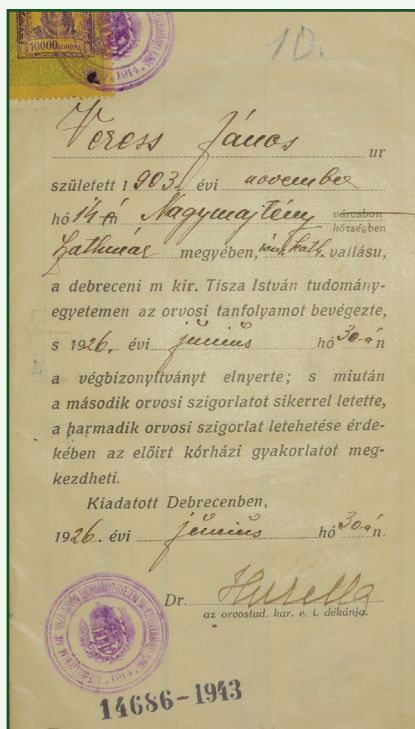 10000 KORONA
10.
Veress János ur
született 1 903. évi november
hó 14 én Nagymajtény városban
községben
Szathmár megyében, róm. kath. vallásu,
a debreceni m kir. Tisza István tudomány-
egyetemen az orvosi tanfolyamot bevégezte,
s 1926. évi június hó 30-án
a végbizonyítványt elnyerte; s miután
a második orvosi szigorlatot sikerrel letette,
a harmadik orvosi szigorlat letehetése érde-
kében az előirt kórházi gyakorlatot meg-
kezdheti.
Kiadatott Debrecenben,
1926. évi június hó 30-án.
Dr. Huzella
az orvostud. kar. e. i. dékánja.
14686-1943